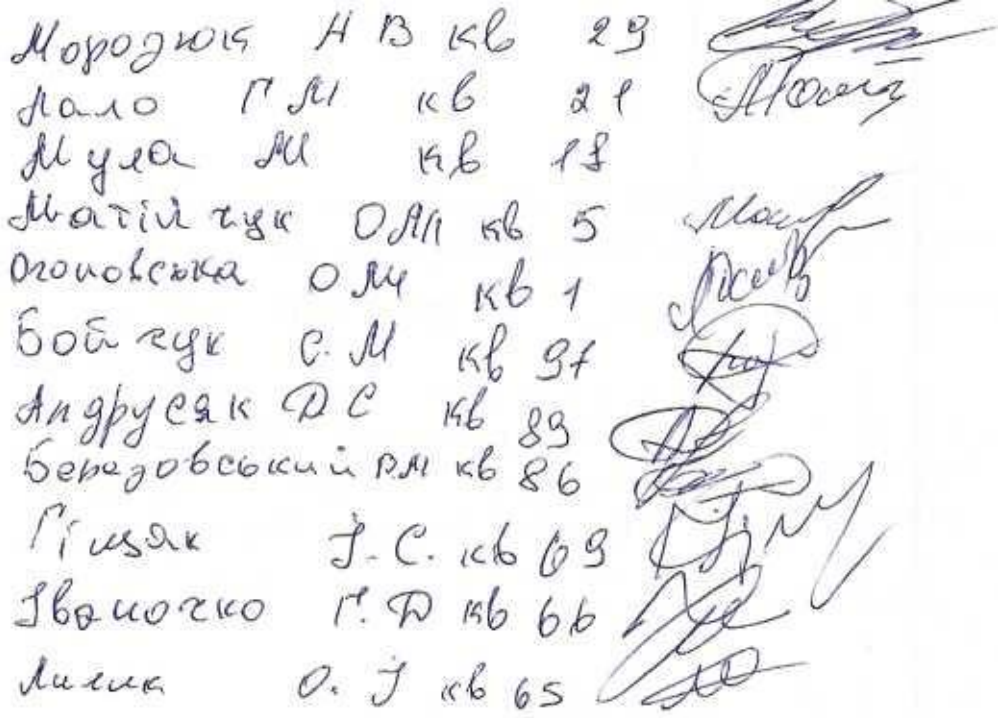 Мородюк Н В кв 29
Лало Г М кв 21
Мула М кв 18
Матійчук О кв 5
Огоновська О М кв 1
Бойчук С. М кв 97
Андрусяк Д С кв 89
Березовський В.М кв 86
Гіщак І. С. кв 69
Іваночко Г. Д кв 66
Лилик О. І кв 65